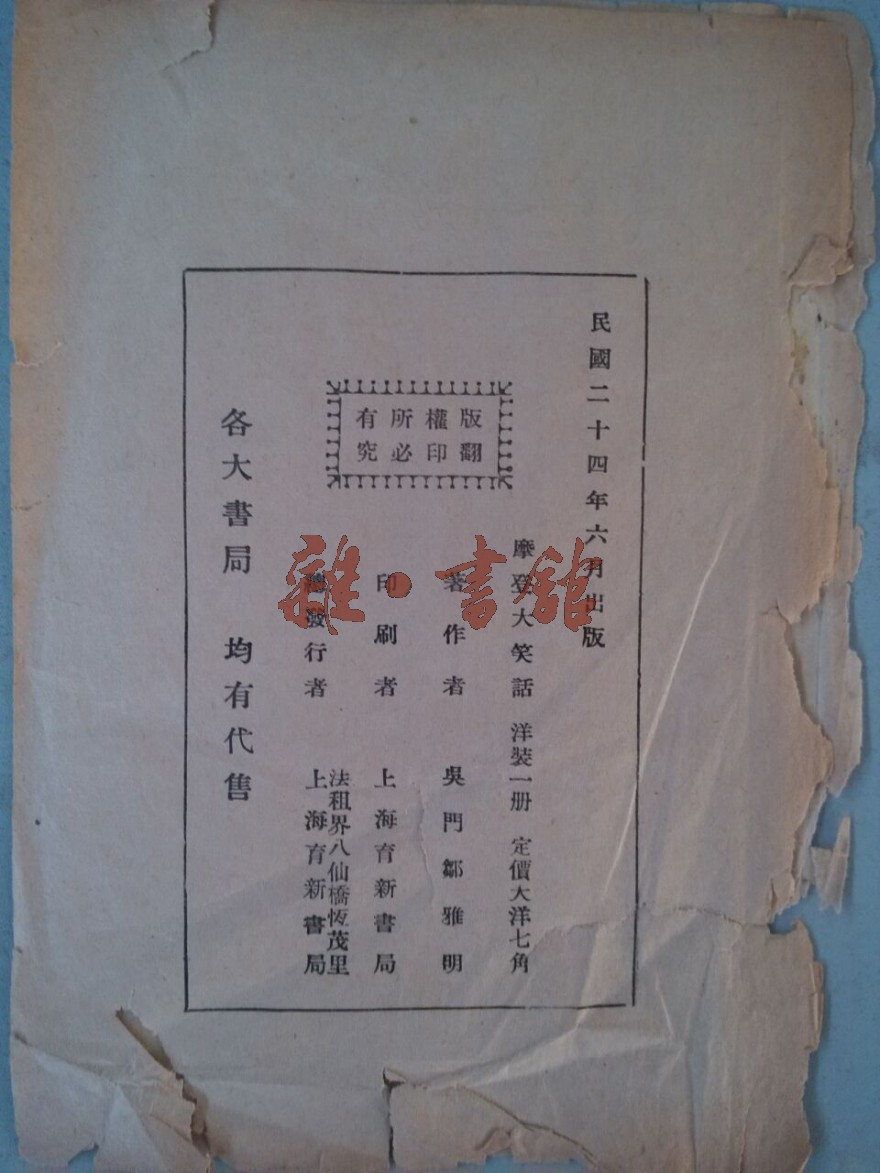 民國二十四年六月出版
摩登大笑話 洋裝一册 定價大洋七角
著作者 吳門鄒雅明
印刷者 上海育新書局
法租界八仙橋恆茂里
總發行者 上海育新書局
版權所有
翻印必究
各大書局 均有代售
雜·書館